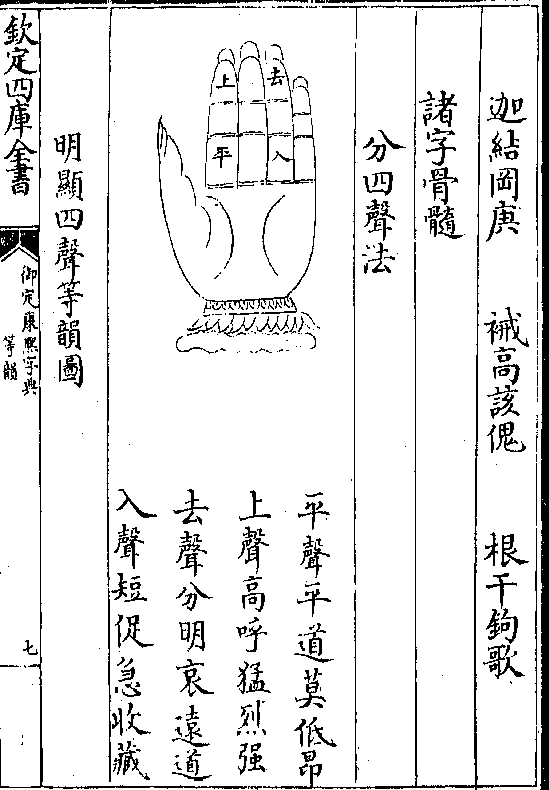 迦結岡庚 祴高該傀 根干鉤歌
諸字骨髓
分四聲法
上
去
平
入
平聲平道莫低昂
上聲高呼猛烈强
去聲分明哀遠道
入聲短促急收藏
明顯四聲等韻圖
欽定四庫全書
御定康熙字典
等韻
七